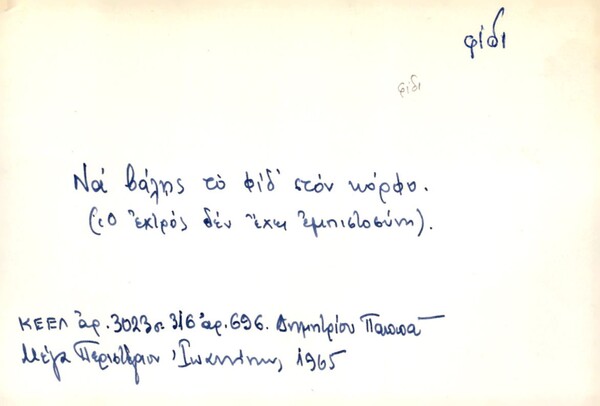 φίδι
φίδι
Νά βάλης τὸ φίδ' στόν κόρφο.
(Ὁ ἐχτρός δέν ἔχει ἐμπιστοσύνη).
ΚΕΕΛ ἀρ. 3023 σ. 316 ἀρ. 696. Δημητρίου Παππᾶ
Μέγα Περιστέριον Ἰωαννίνης 1965